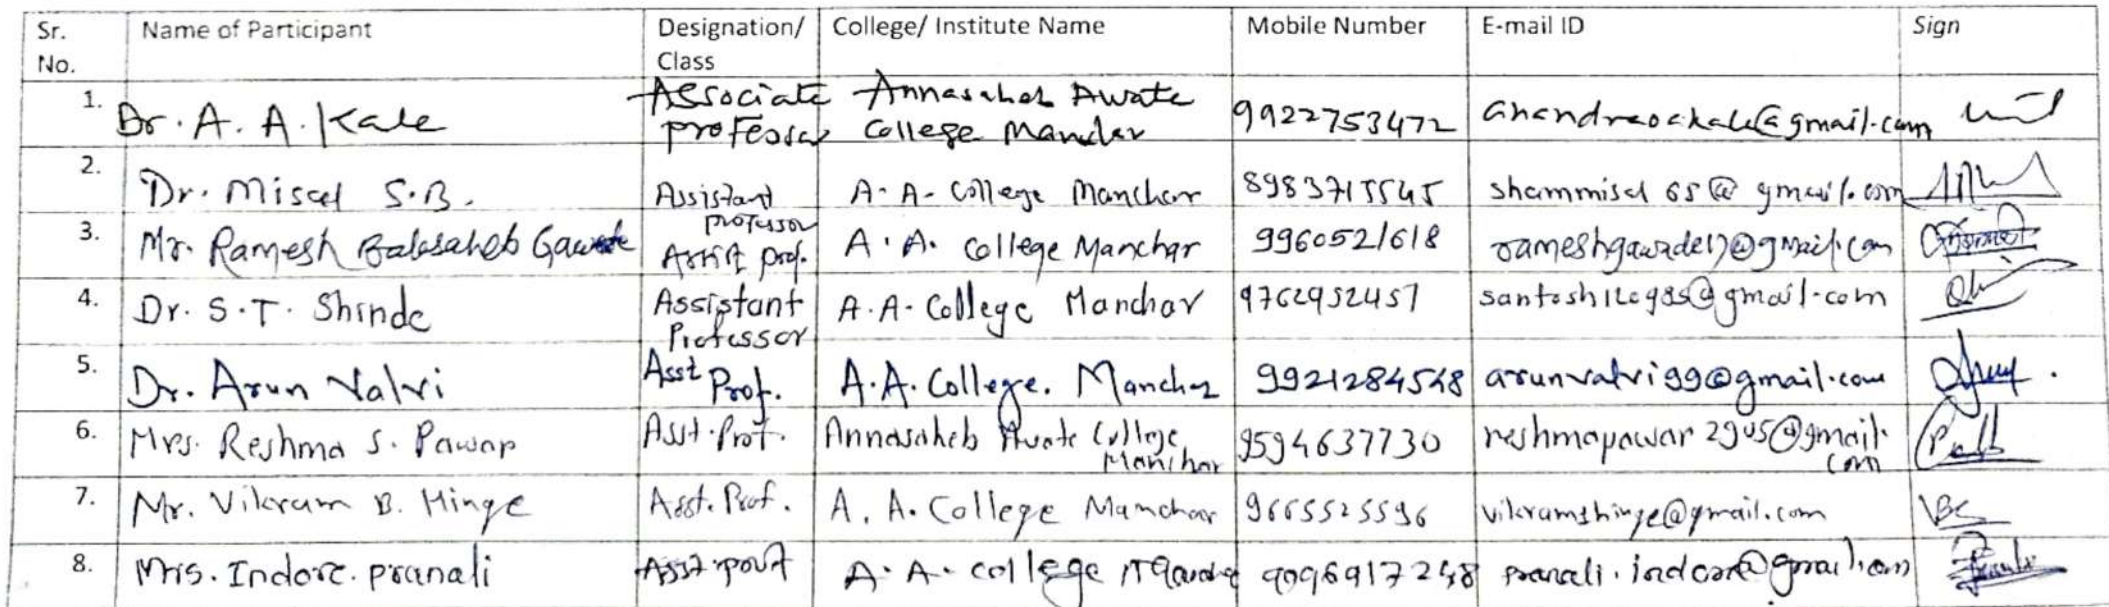 Sr. No. Name of Participant Designation/ Class College/ Institute Name Mobile Number E-mail ID Sign
1. Dr. A. A. Kale Associate professor Annasaheb Awate College Manchar 9922753472 anandraokale@gmail.com
2. Dr. Misal S.B. Assistant professor A. A. College Manchar 8983715545 shammisal65@gmail.com
3. Mr. Ramesh Balasaheb Gawade Assist prof. A. A. College Manchar 9960521618 rameshgawade17@gmail.com
4. Dr. S.T. Shinde Assistant Professor A.A. College Manchar 9762952457 @gmail.com
5. Dr. Arun Valvi Asst Prof. A.A. College. Manchar 9921284548 arunvalvi99@gmail.com
6. Mrs. Reshma S. Pawar Asst. Prof. Annasaheb Awate College Manchar 9594637730 reshmapawar2905@gmail.com
7. Mr. Vikram B. Hinge Asst. Prof. A. A. College Manchar 9665525596 vikramshinge@gmail.com
8. Mrs. Indore. pranali Asst. prof A. A. college Manchar 9096917248 pranali.indore@gmail.com